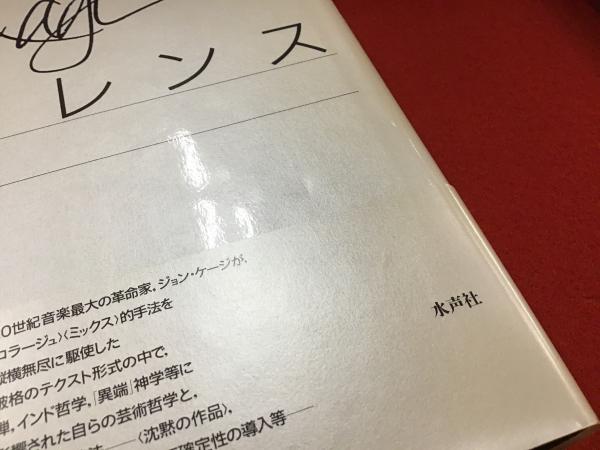 レンス
0世紀音楽最大の革命家，ジョン・ケージが，
コラージュ〉〈ミックス〉的手法を
縦横無尽に駆使した
破格のテクスト形式の中で，
禅，インド哲学，「異端」神学等に
響された自らの芸術哲学と，
〈沈黙の作品〉，
確定性の導入等──
水声社